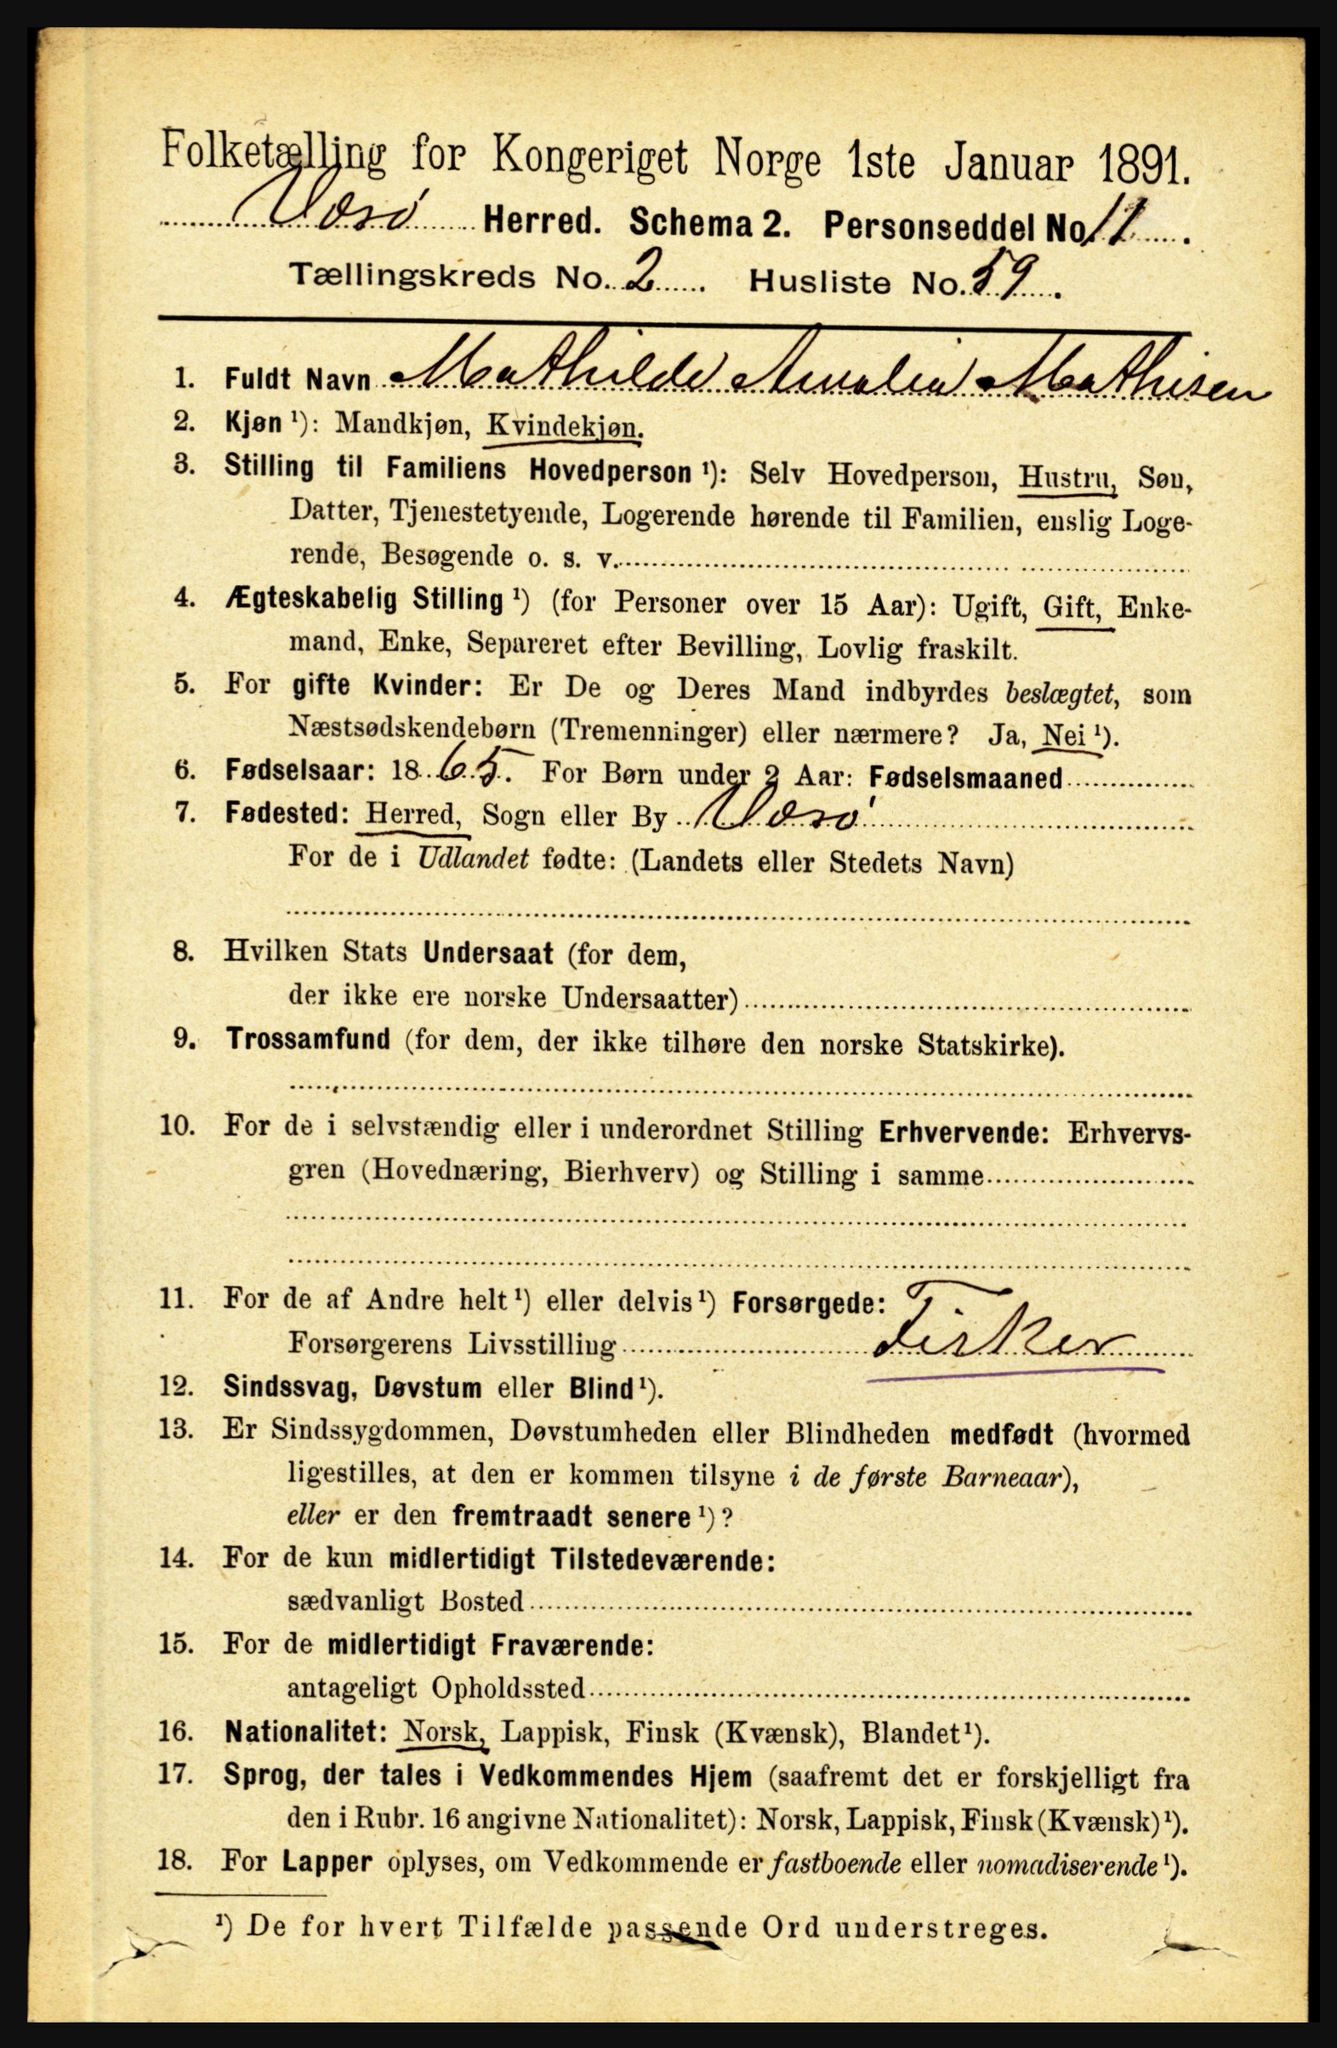 Folketælling for Kongeriget Norge 1ste Januar 1891.
Værø Herred. Schema 2. Personseddel No. 11.
Tællingskreds No. 2. Husliste No. 59.
1. Fuldt Navn Mathilde Amalia Mathisen
2. Kjøn ¹): Mandkjøn, Kvindekjøn.
3. Stilling til Familiens Hovedperson ¹): Selv Hovedperson, Hustru, Søn,
Datter, Tjenestetyende, Logerende hørende til Familien, enslig Loge-
rende, Besøgende o. s. v.
4. Ægteskabelig Stilling ¹) (for Personer over 15 Aar): Ugift, Gift, Enke-
mand, Enke, Separeret efter Bevilling, Lovlig fraskilt.
5. For gifte Kvinder: Er De og Deres Mand indbyrdes beslægtet, som
Næstsødskendebørn (Tremenninger) eller nærmere? Ja, Nei ¹).
6. Fødselsaar: 1865. For Børn under 2 Aar: Fødselsmaaned
7. Fødested: Herred, Sogn eller By Værø
For de i Udlandet fødte: (Landets eller Stedets Navn)
8. Hvilken Stats Undersaat (for dem,
der ikke ere norske Undersaatter)
9. Trossamfund (for dem, der ikke tilhøre den norske Statskirke).
10. For de i selvstændig eller i underordnet Stilling Erhvervende: Erhvervs-
gren (Hovednæring, Bierhverv) og Stilling i samme
11. For de af Andre helt ¹) eller delvis ¹) Forsørgede:
Forsørgerens Livsstilling Fisker
12. Sindssvag, Døvstum eller Blind ¹).
13. Er Sindssygdommen, Døvstumheden eller Blindheden medfødt (hvormed
ligestilles, at den er kommen tilsyne i de første Barneaar),
eller er den fremtraadt senere ¹)?
14. For de kun midlertidigt Tilstedeværende:
sædvanligt Bosted
15. For de midlertidigt Fraværende:
antageligt Opholdssted
16. Nationalitet: Norsk, Lappisk, Finsk (Kvænsk), Blandet ¹).
17. Sprog, der tales i Vedkommendes Hjem (saafremt det er forskjelligt fra
den i Rubr. 16 angivne Nationalitet): Norsk, Lappisk, Finsk (Kvænsk) ¹).
18. For Lapper oplyses, om Vedkommende er fastboende eller nomadiserende ¹).
¹) De for hvert Tilfælde passende Ord understreges.